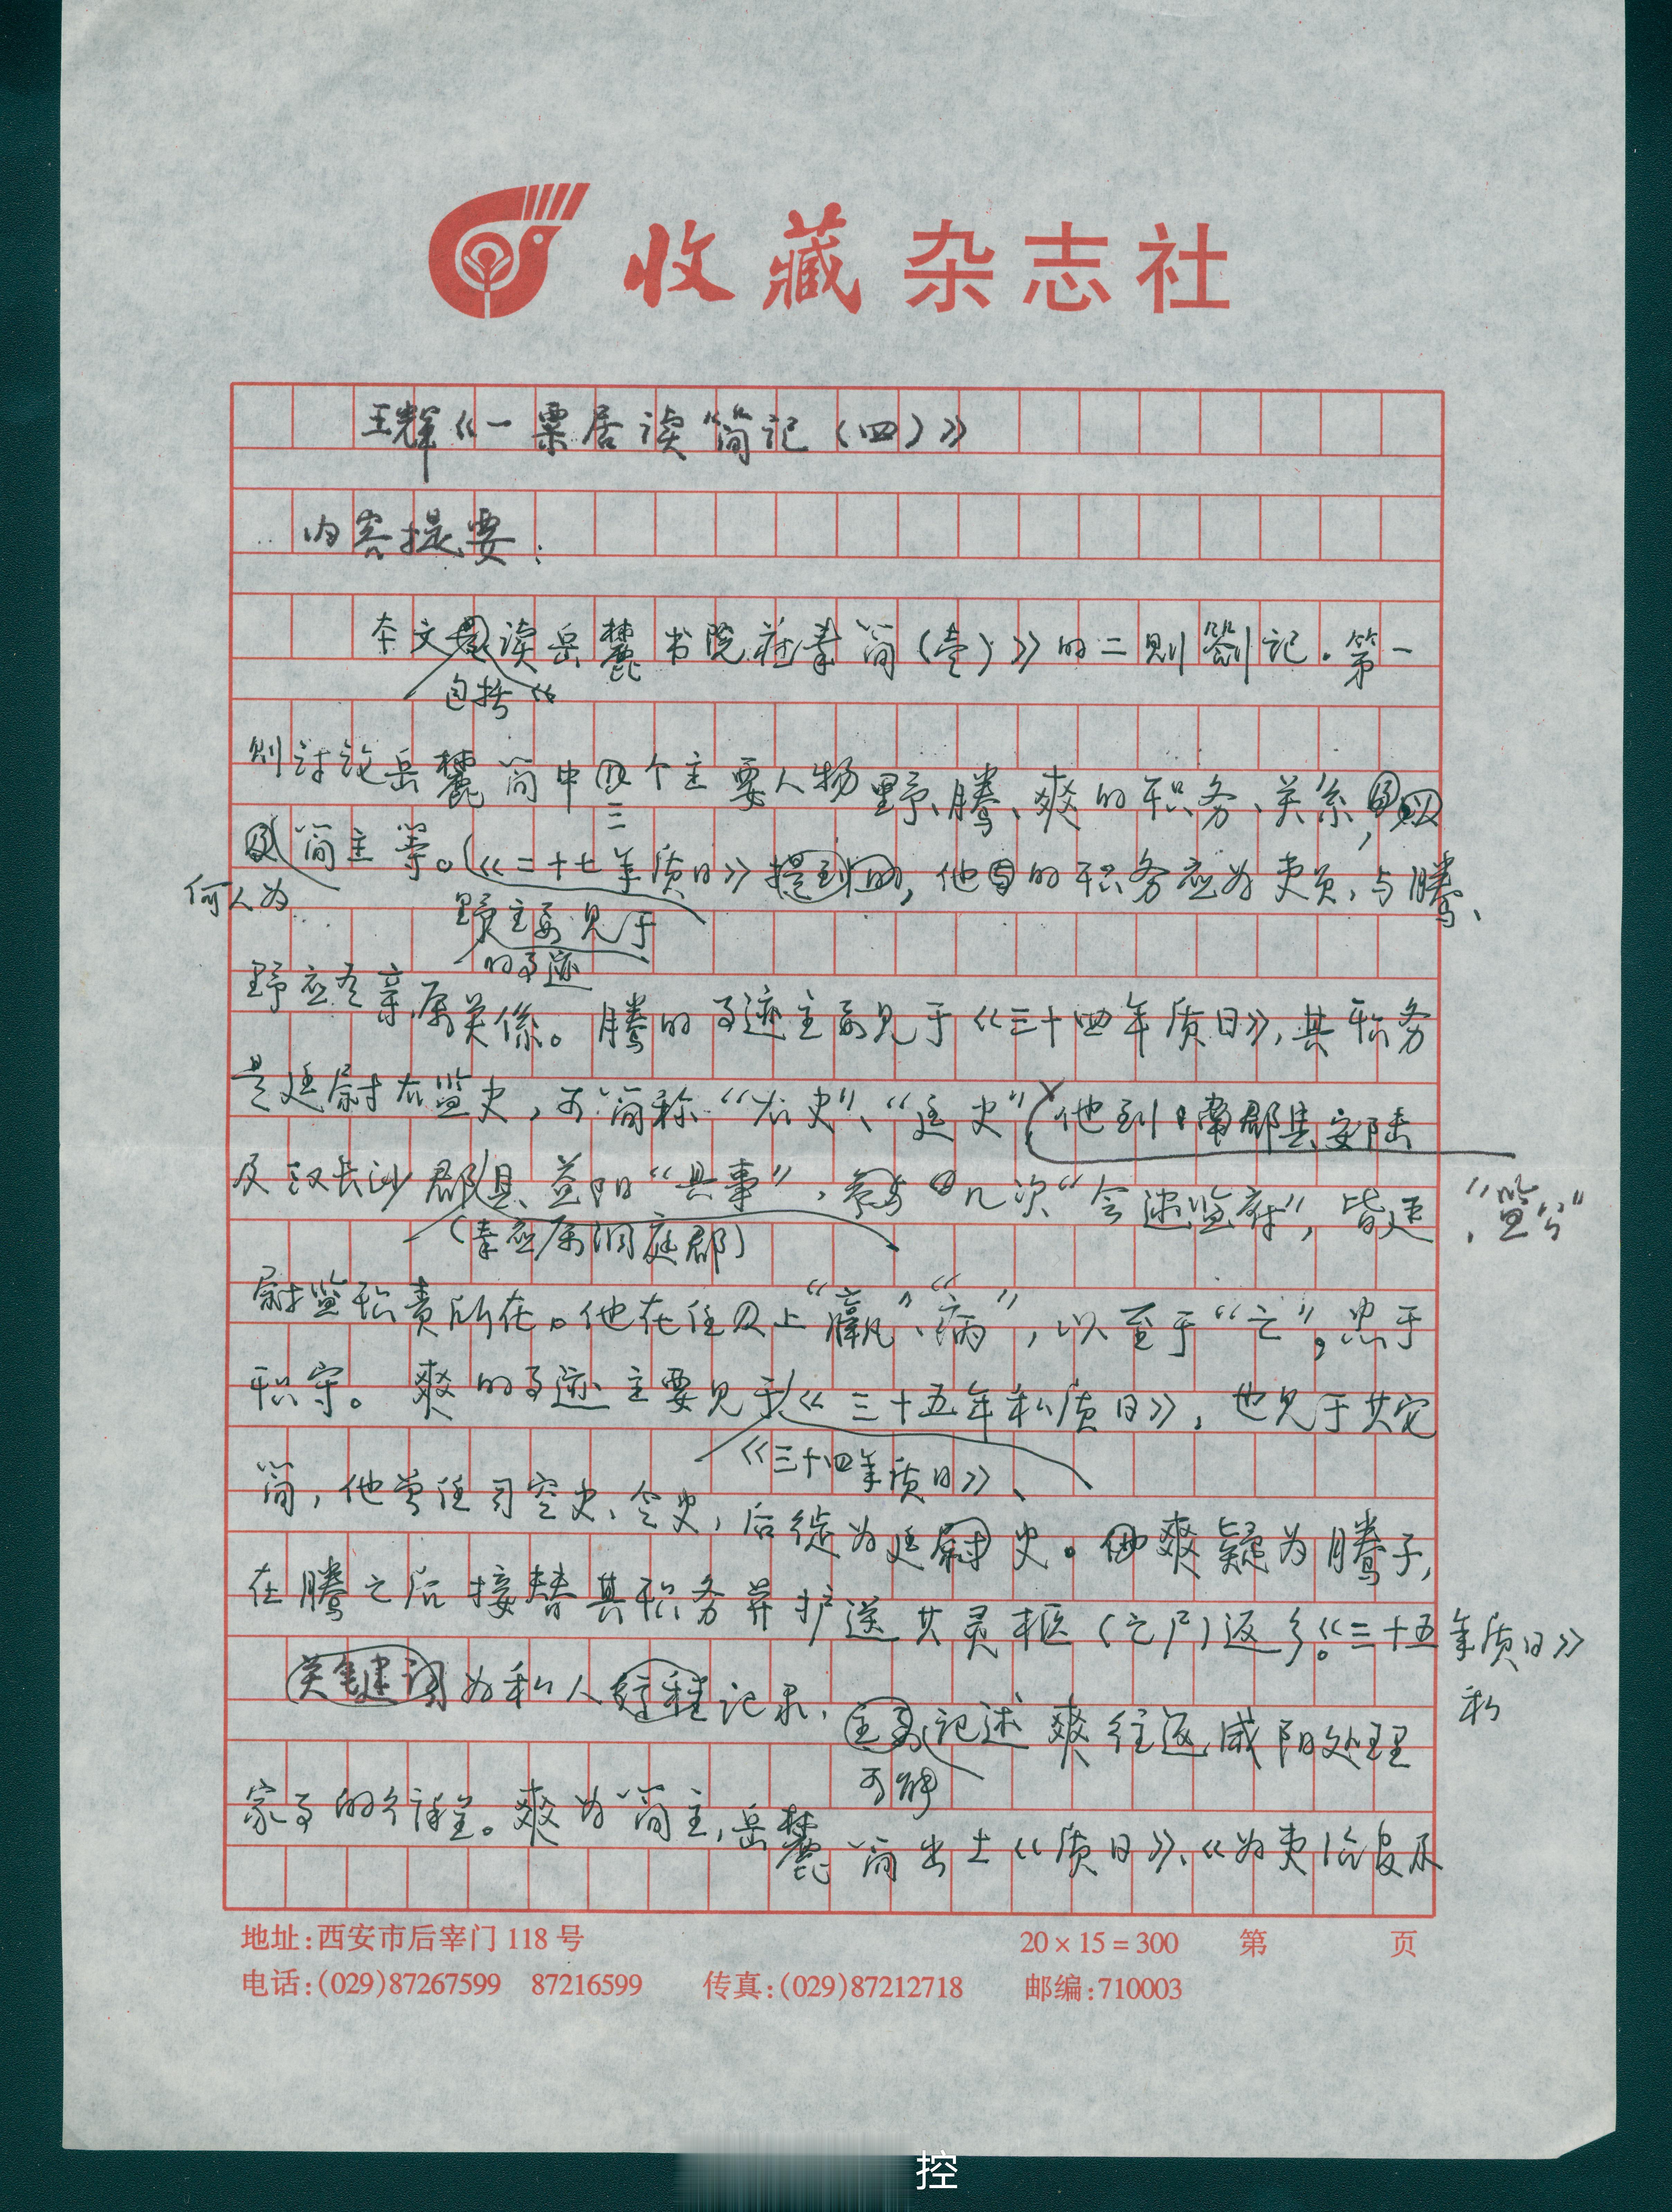 收藏杂志社
王辉《一粟居读简记（四）》
内容提要：
本文是读岳麓书院藏秦简（壹）》的二则劄记。第一
包括《
则讨论岳麓简中四个主要人物野、腾、爽的职务、关系，
三
及简主等。《二十七年质日》提到的，他的职务应为吏员，与腾、
何人为
野主要见于
的事迹
野应无亲属关係。腾的事迹主要见于《三十四年质日》，其职务
是廷尉右监史，可简称“右史”、“廷史”他到南郡县安陆
及汉长沙郡县益阳“具事”，参与几次“会逮监府”，皆廷
，“监公”
（秦应属洞庭郡）
尉监职责所在。他在任上“羸”、“病”，以至于“亡”，忠于
职守。爽的事迹主要见于《三十五年私质日》，也见于其它
《三十四年质日》、
简，他曾任司空史、令史，后徙为廷尉史。爽疑为腾子，
在腾之后接替其职务并护送其灵柩（亡尸）返乡。《三十五年质日》
私
关键词为私人行程记录，主要记述爽往返咸阳处理
可能
家事的行程。爽为简主，岳麓简出土《质日》、《为吏治官及
地址：西安市后宰门118号
20×15=300 第 页
电话：(029)87267599 87216599 传真：(029)87212718 邮编：710003
控